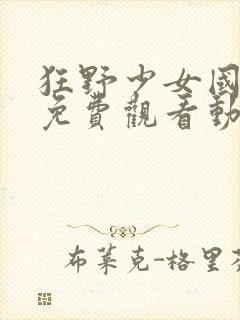 狂野少女國
免費觀看動
布萊克-格里芬